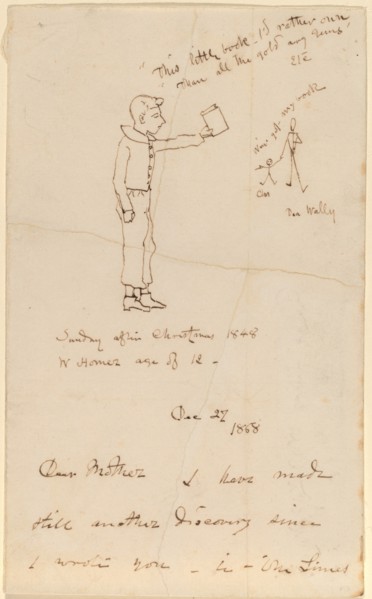 "This little book I'd rather own
Than all the gold any gems"
Etc
got my book
Chas
Wally
Sunday after Christmas 1848
W Homer age of 12 -
Dec 27
1888
Dear Mother I have made
still another discovery since
I wrote you - in - the Times